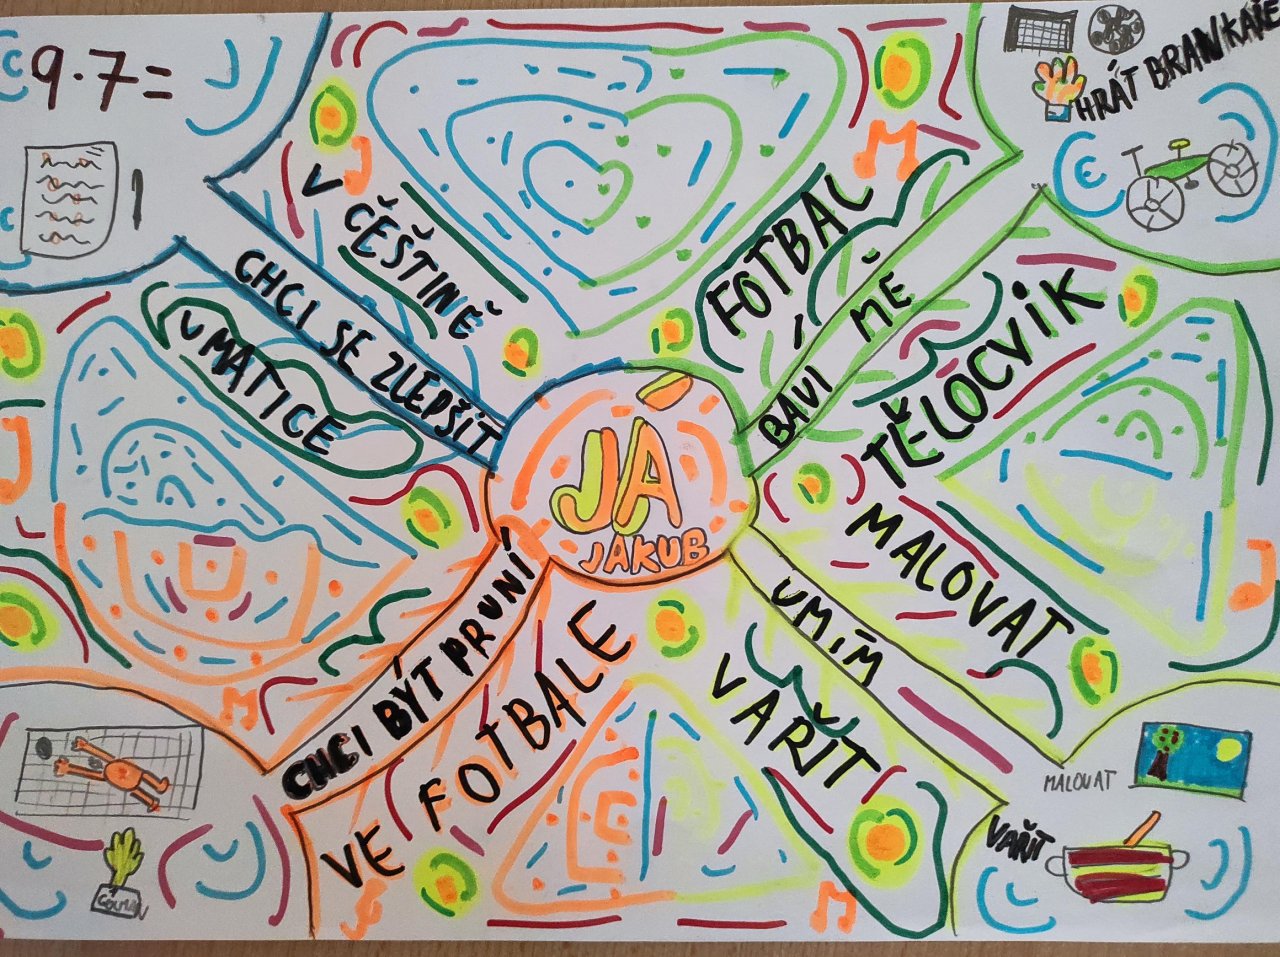 9·7=
1
HRÁT BRANKAŘE
V
ČEŠTINĚ
CHCI SE ZLEPŠIT
V MATICE
FOTBAL
BAVÍ MĚ
TĚLOCVIK
JÁ
JAKUB
MALOVAT
UMÍM
VAŘIT
CHCI BÝT PRVNÍ
VE FOTBALE
MALOVAT
VAŘIT